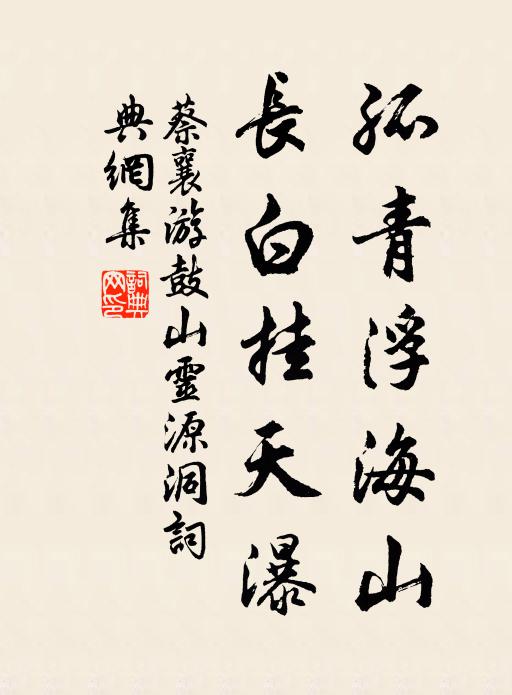 孤青浮海山
長白挂天瀑
蔡襄游鼓山靈源洞詞
典網集
詞典網印